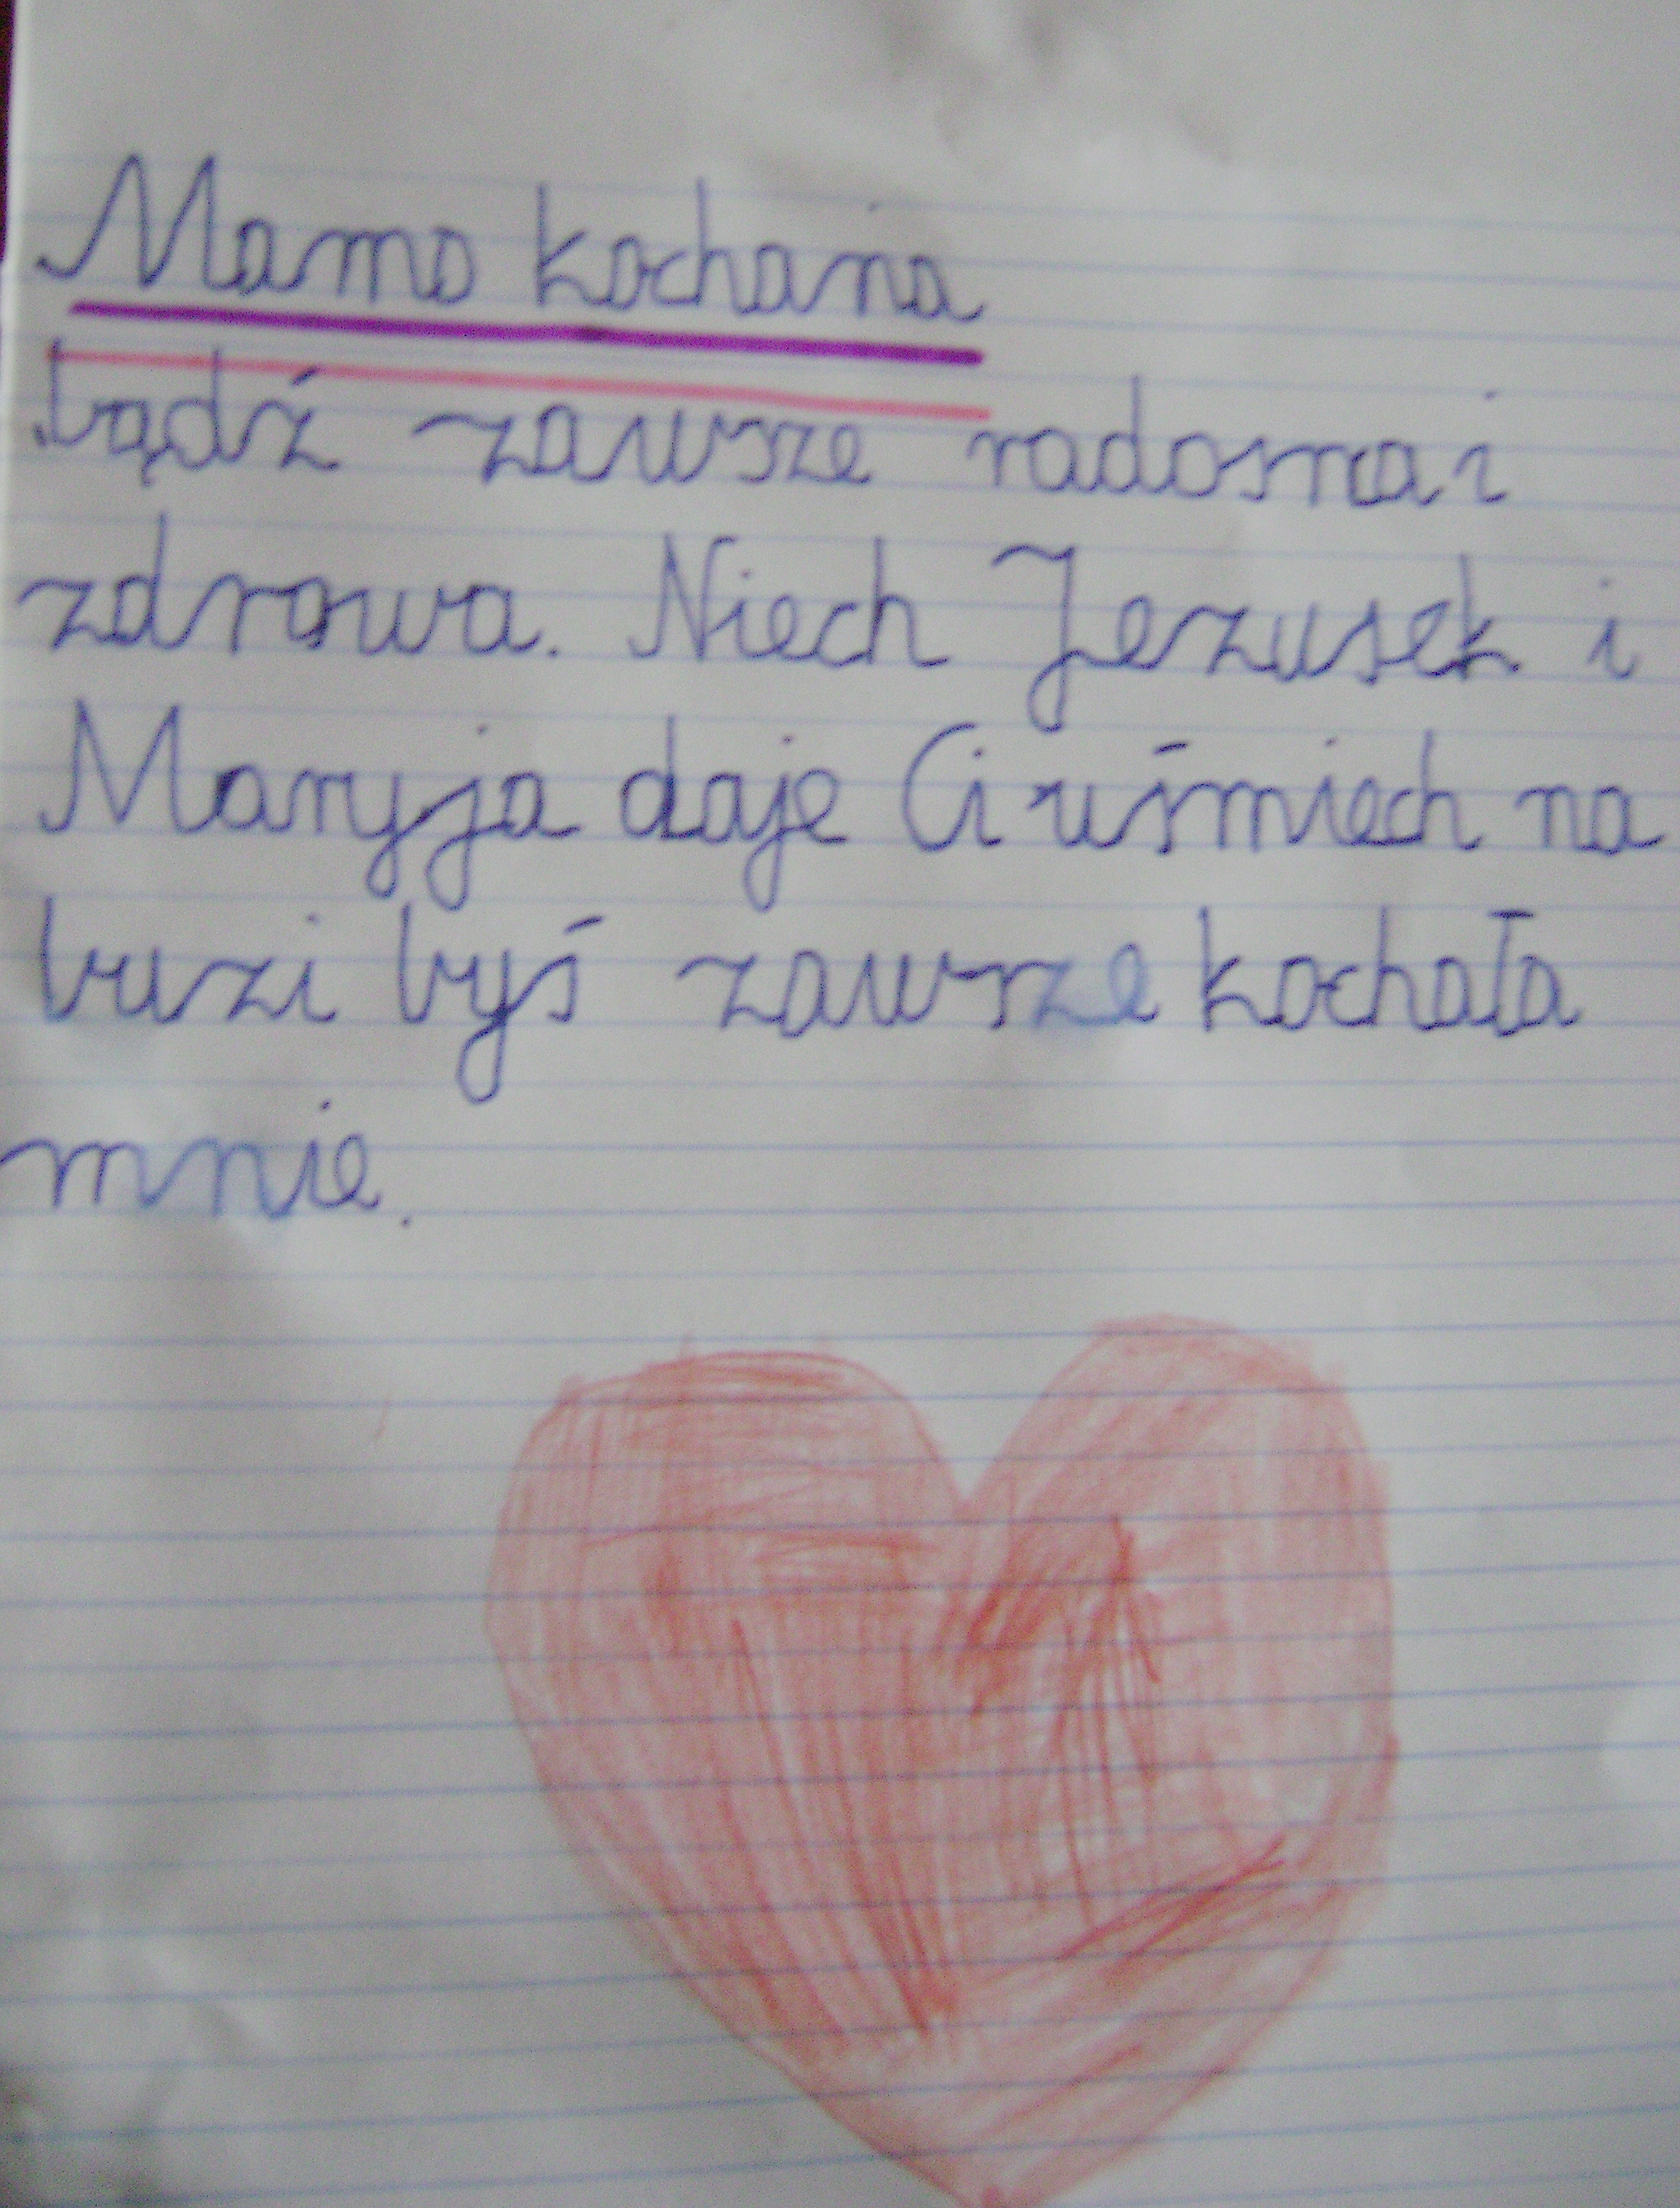 Mamo kochana
bądź zawsze radosna i
zdrowa. Niech Jezusek i
Maryja daje Ci uśmiech na
buzi byś zawsze kochała
mnie.